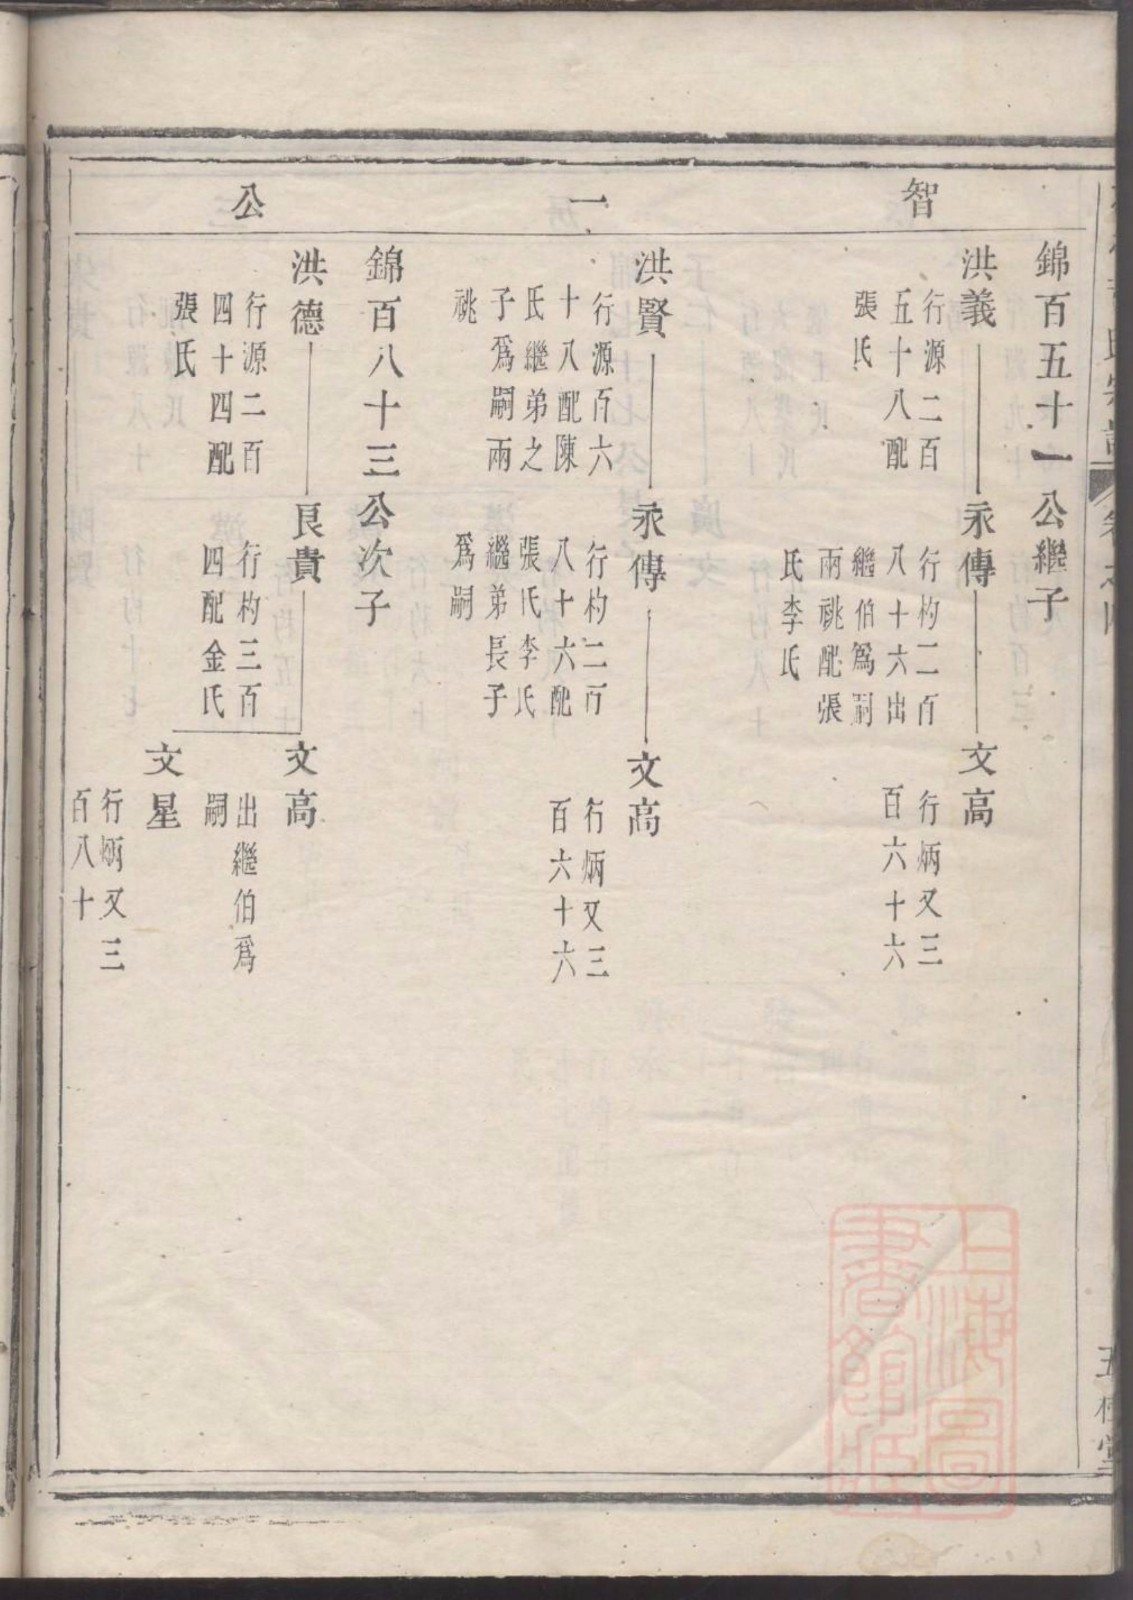 智一公
錦百五十一公繼子
洪義
行源二百
五十八配
張氏
永傳
行杓二百
八十六出
繼伯爲嗣
兩祧配張
氏李氏
文高
行炳又三
百六十六
洪賢
行源百六
十八配陳
氏繼弟之
子爲嗣兩
祧
永傳
行杓二百
八十六配
張氏李氏
繼弟長子
爲嗣
文高
行炳又三
百六十六
錦百八十三公次子
洪德
行源二百
四十四配
張氏
良貴
行杓三百
四配金氏
文高
出繼伯爲
嗣
文星
行炳又三
百八十
上海圖
書館藏